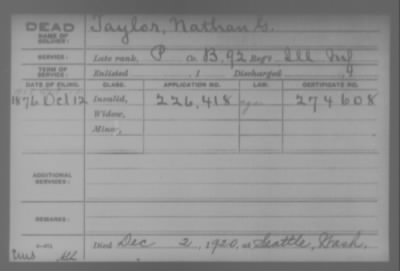 DEAD Taylor, Nathan G.
NAME OF SOLDIER:
SERVICE: Late rank, P Co. B, 92 Reg't Ill Inf
TERM OF SERVICE: Enlisted , 1 Discharged , 9
DATE OF FILING. CLASS. APPLICATION NO. LAW. CERTIFICATE NO.
1876 Oct 12 Invalid, 226,418 274608
Widow,
Minor,
ADDITIONAL SERVICES:
REMARKS:
Died Dec 2, 1920, at Seattle, Wash.